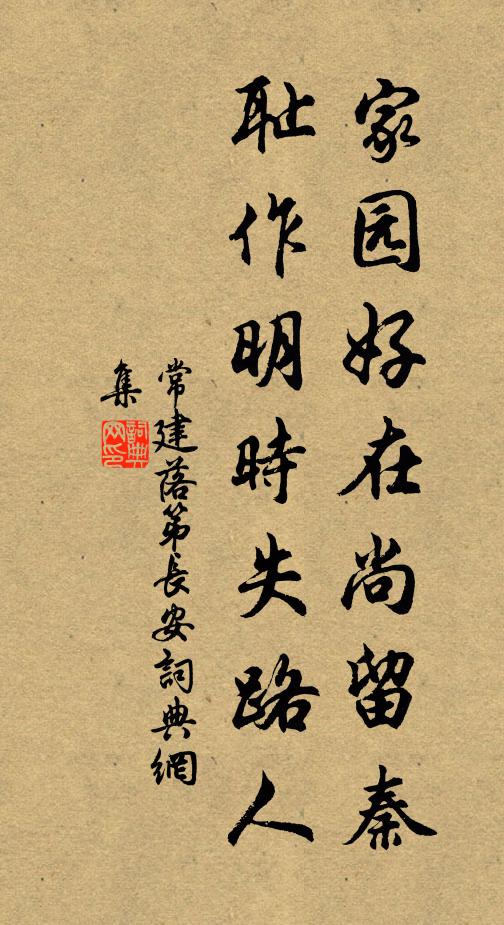 家园好在尚留秦
耻作明時失路人
常建落第長安詞典網
集
詞典
网印